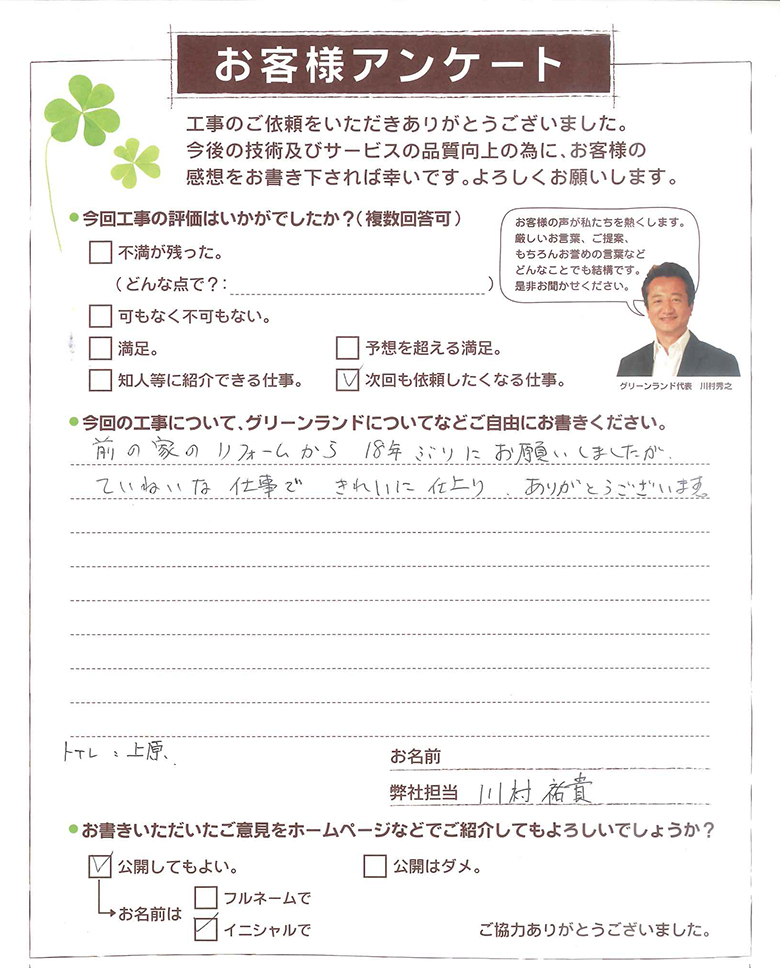 お客様アンケート
工事のご依頼をいただきありがとうございました。
今後の技術及びサービスの品質向上の為に、お客様の
感想をお書き下されば幸いです。よろしくお願いします。
今回工事の評価はいかがでしたか？(複数回答可)
不満が残った。
(どんな点で？: )
可もなく不可もない。
満足。
予想を超える満足。
知人等に紹介できる仕事。
次回も依頼したくなる仕事。
お客様の声が私たちを熱くします。
厳しいお言葉、ご提案、
もちろんお誉めの言葉など
どんなことでも結構です。
是非お聞かせください。
グリーンランド代表 川村秀之
今回の工事について、グリーンランドについてなどご自由にお書きください。
前の家のリフォームから 18年ぶりにお願いしましたが
ていねいな仕事で きれいに仕上り、ありがとうございます
トイレ:上原、
お名前
弊社担当 川村祐貴
お書きいただいたご意見をホームページなどでご紹介してもよろしいでしょうか？
公開してもよい。
公開はダメ。
お名前は
フルネームで
イニシャルで
ご協力ありがとうございました。